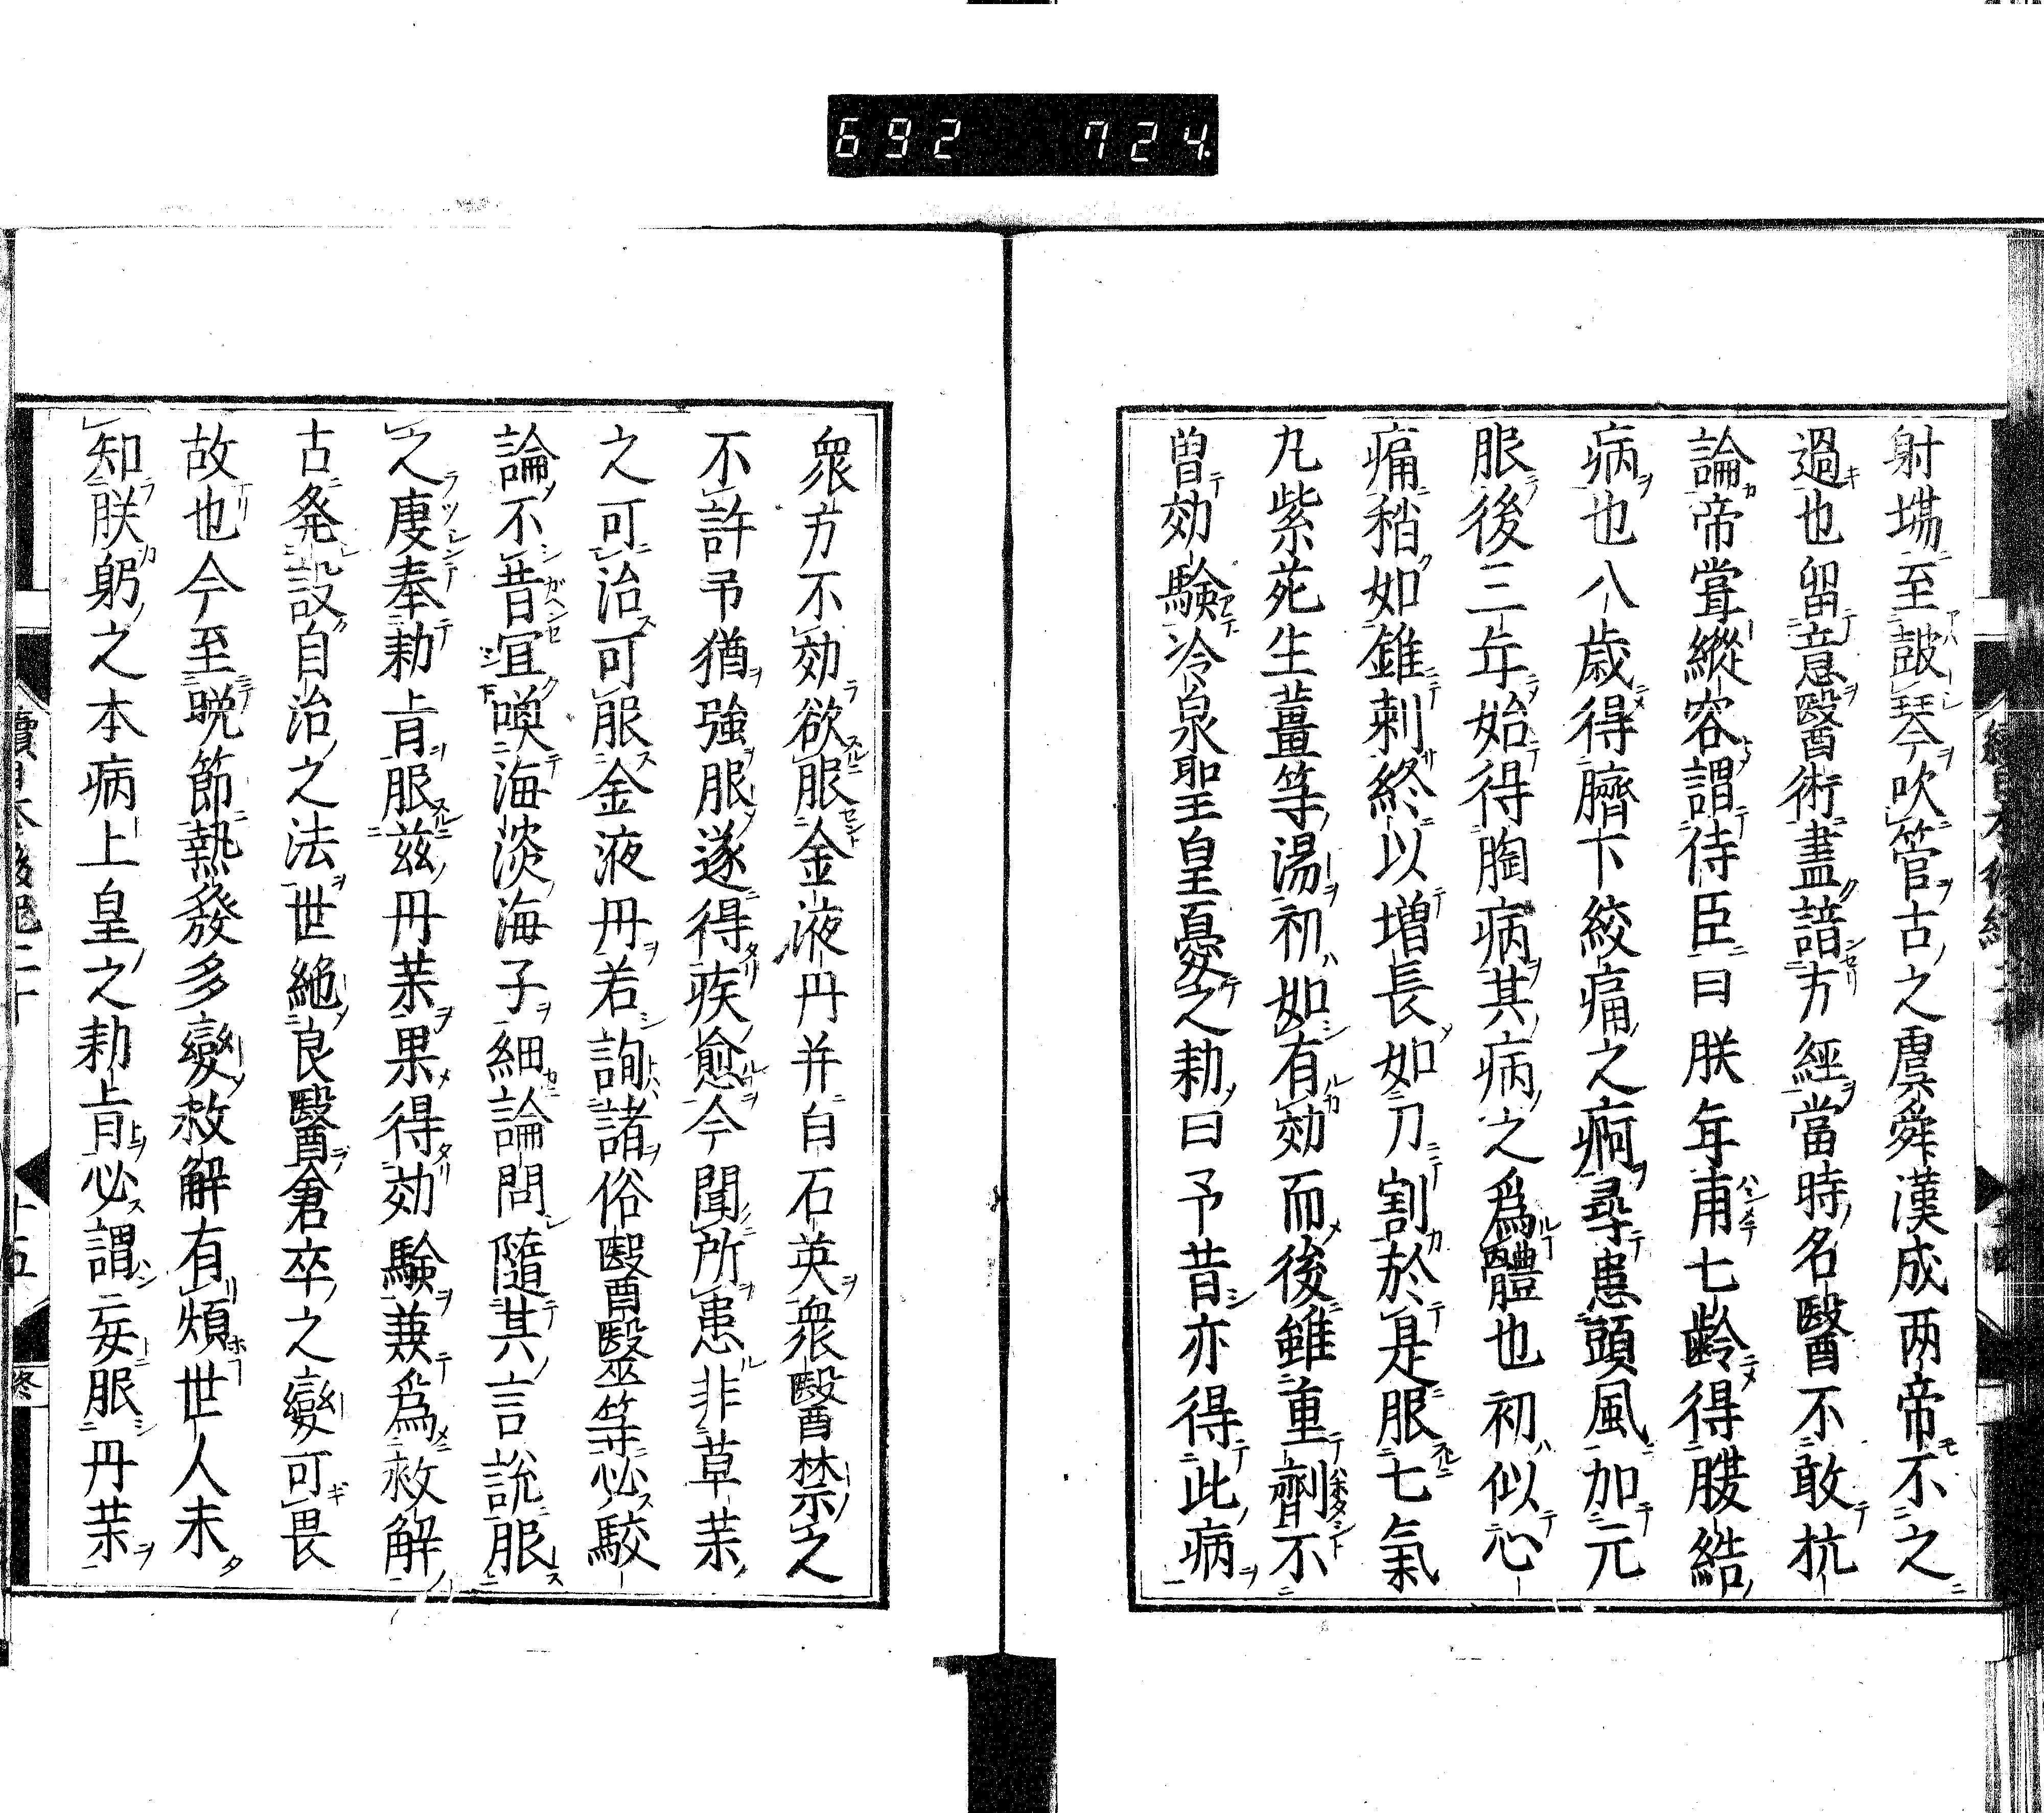 692 724
射塲至鼓琴吹管古之虞舜漢成两帝不之
過也留意醫術盡諳方經當時名醫不敢抗
論帝嘗縱容謂侍臣曰朕年甫七齡得腹結
病也八歳得臍下絞痛之痾尋患頭風加元
服後三年始得胸病其病之爲體也初似心
痛稍如錐刺終以增長如刀割於是服七氣
丸紫苑生薑等湯初如有効而後雖重劑不
曽効驗冷泉聖皇憂之勅曰予昔亦得此病
衆方不効欲服金液丹并白石英衆醫禁之
不許弔猶強服遂得疾愈今聞所患非草藥
之可治可服金液丹若詢諸俗醫毉等必駮
論不昔宜喚海淡海子細論問隨其言說服
之虔奉勅旨服兹丹藥果得効驗兼爲救解
古発設自治之法世絶良醫倉卒之變可畏
故也今至晩節熱發多變救解有煩世人未
知朕躬之本病上皇之勅旨必謂妄服丹藥
續日本後紀二十
十五
終